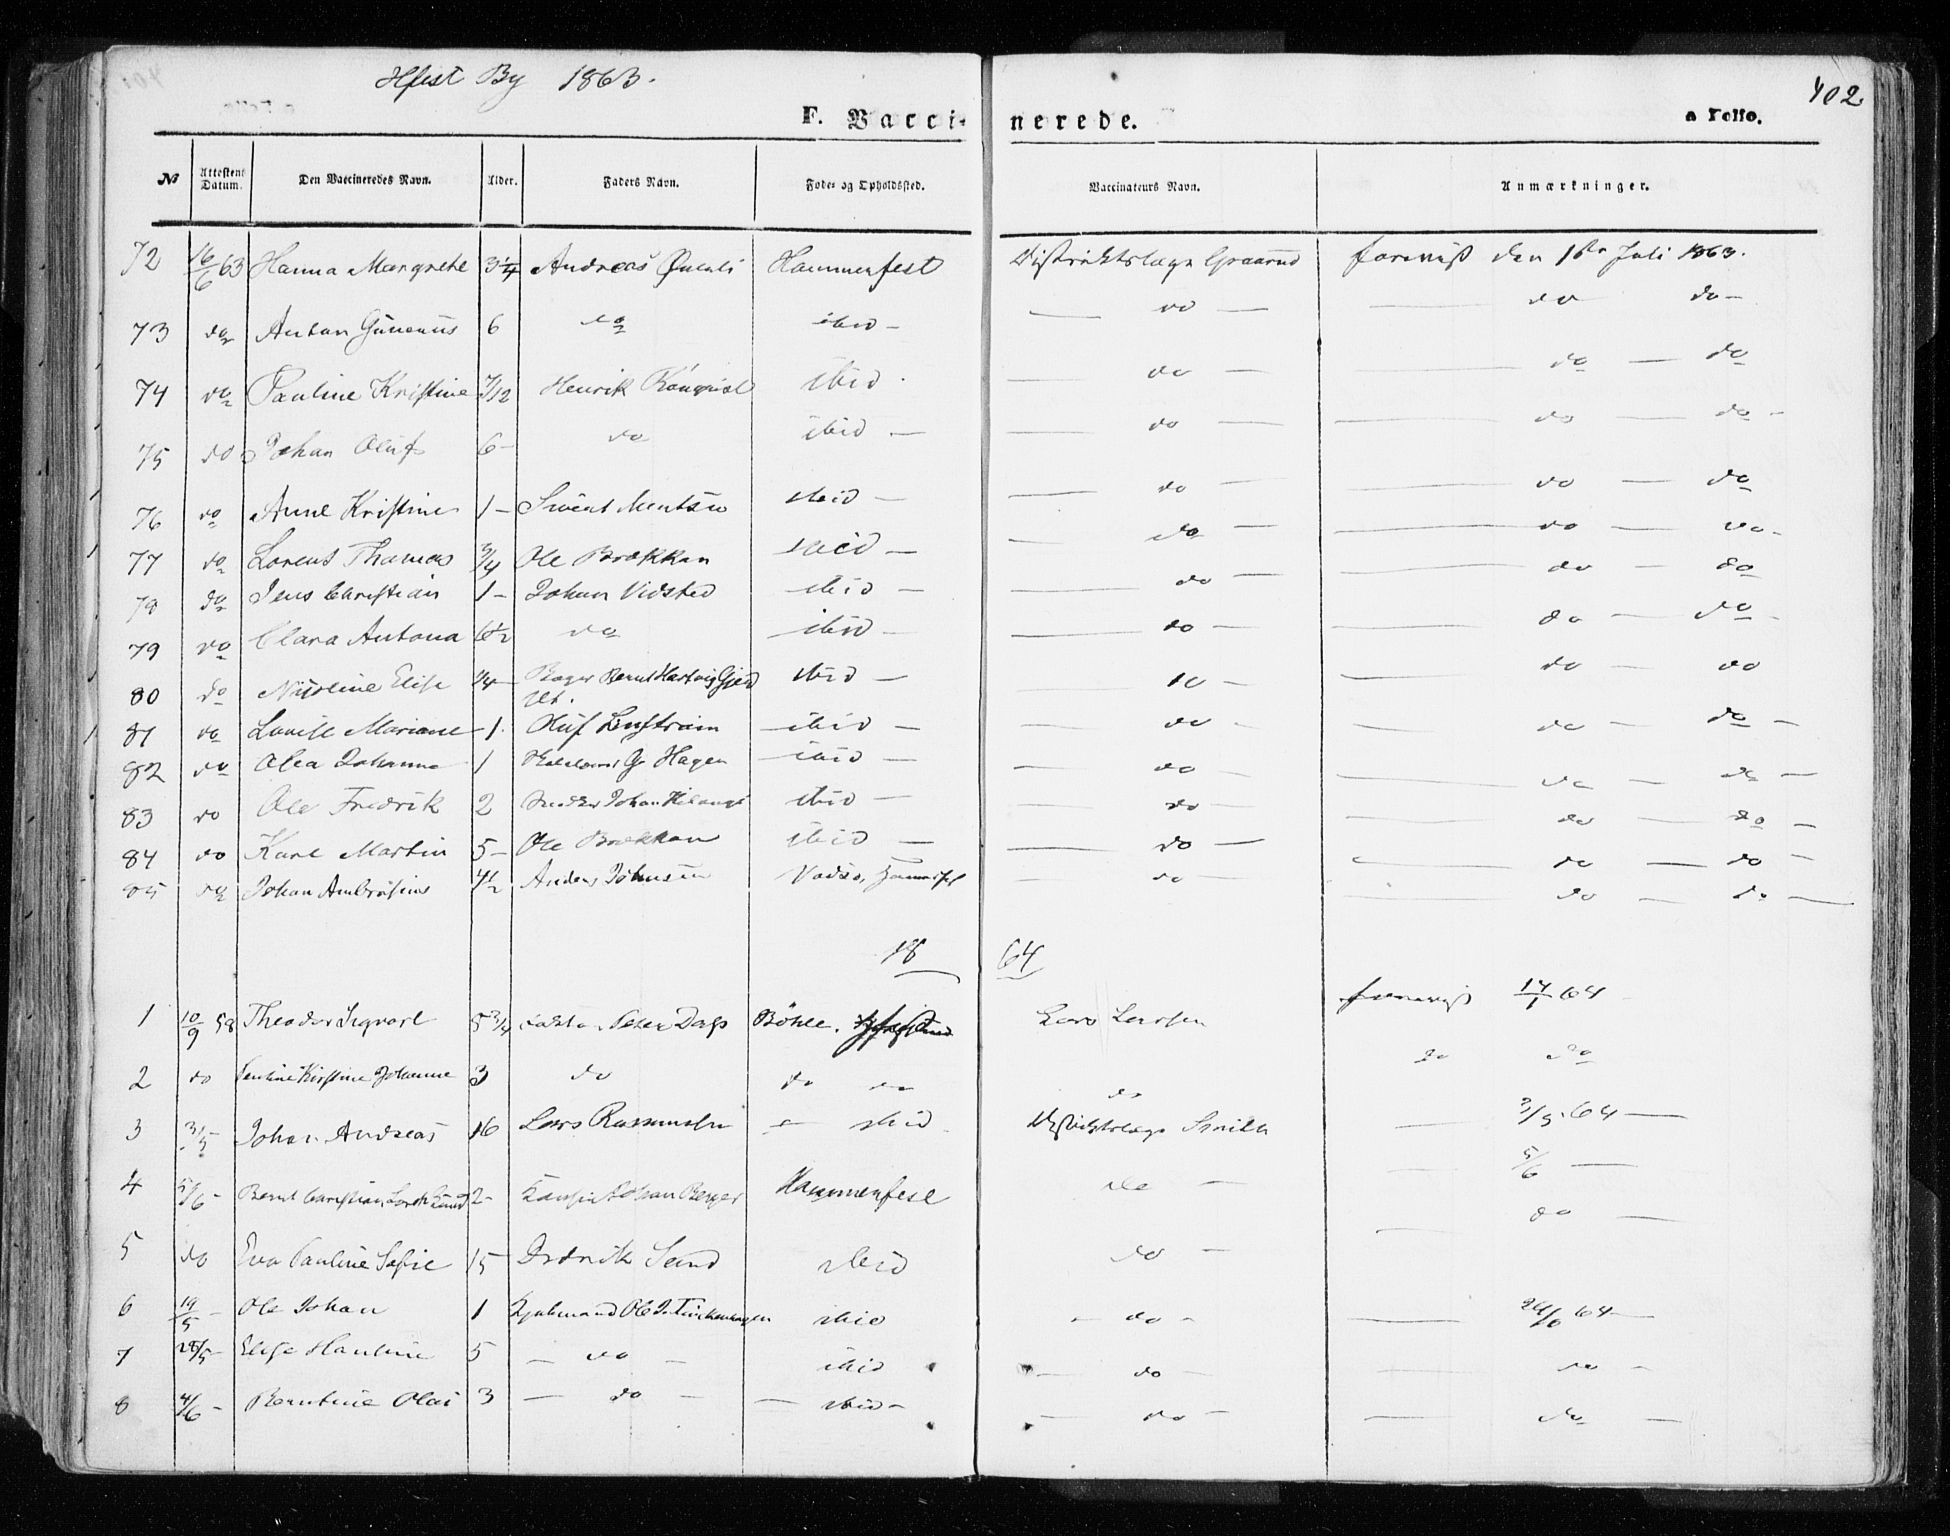 Hfest By 1863.
402
F. Vaccinerede.
a Folio.
No Attestens Datum. Den Vaccineredes Navn. Alder. Faders Navn. Føde- og Opholdssted. Vaccinateurs Navn. Anmærkninger.
72 16/6 63 Hanna Margrethe 3 1/4 Andreas Hammerfest Distriktslæge Graarud forevist den 1ste Juli 1863.
73 do Anton 6 do ibid – — do — — do do –
74 do Pauline Kristine 7/12 Henrik ibid. — do — — do — do
75 do Johan Oluf 6 – do ibid — — do — — do — do –
76 do Anne Kristine 1 – ibid — — do — — do — do
77 do Lorents Thomas 3/4 Ole Brækkan ibid — — do — — do — do –
78 do Jens Christian 1 – Johan Vidsted ibid — — do — — do — do
79 do Clara Antona 6 1/2 do ibid — — do — — do — do
80 do Nicoline Elise 1/4 Bager Bernt Hartvig ibid — do — — do — do
81 do Lovise Mariane 1 Oluf ibid — — do — — do — do —
82 do Olea Johanna 1 Hagen ibid — — do — — do — do —
83 do Ole Fredrik 2 Johan ibid — — do — — do — do —
84 do Karl Martin 5 – Ole Brækkan ibid — — do — — do — do –
85 do Johan Ambrosius 4 1/2 Anders Johnsen Vadsø, — do — — do — do —
18 64
1 10/9 58 Theodor Ingvart 5 3/4 Peter Dass Bøhle. Lars Larsen forevist 14/1 64
2 do Kirstine Johanne 3 do do do do do do
3 3/5 Johan Andreas 16 Lars Rasmussen — ibid Distriktslæge Smith — 3/5 64 —
4 5/6 – Bernt Christian 2 – Johan Berger Hammerfest do — — 5/6 —
5 do Eva Pauline Sofie 15 Sund ibid do — — do —
6 19/5 – Ole Johan 1 Kjøbmand Ole J. Finckenhagen ibid – do – — 64 —
7 28/5 – Elise Hauline 5 — do — ibid — do — — do –
8 4/6 – Berntine Olai 3 — do — — ibid – — do — — do —